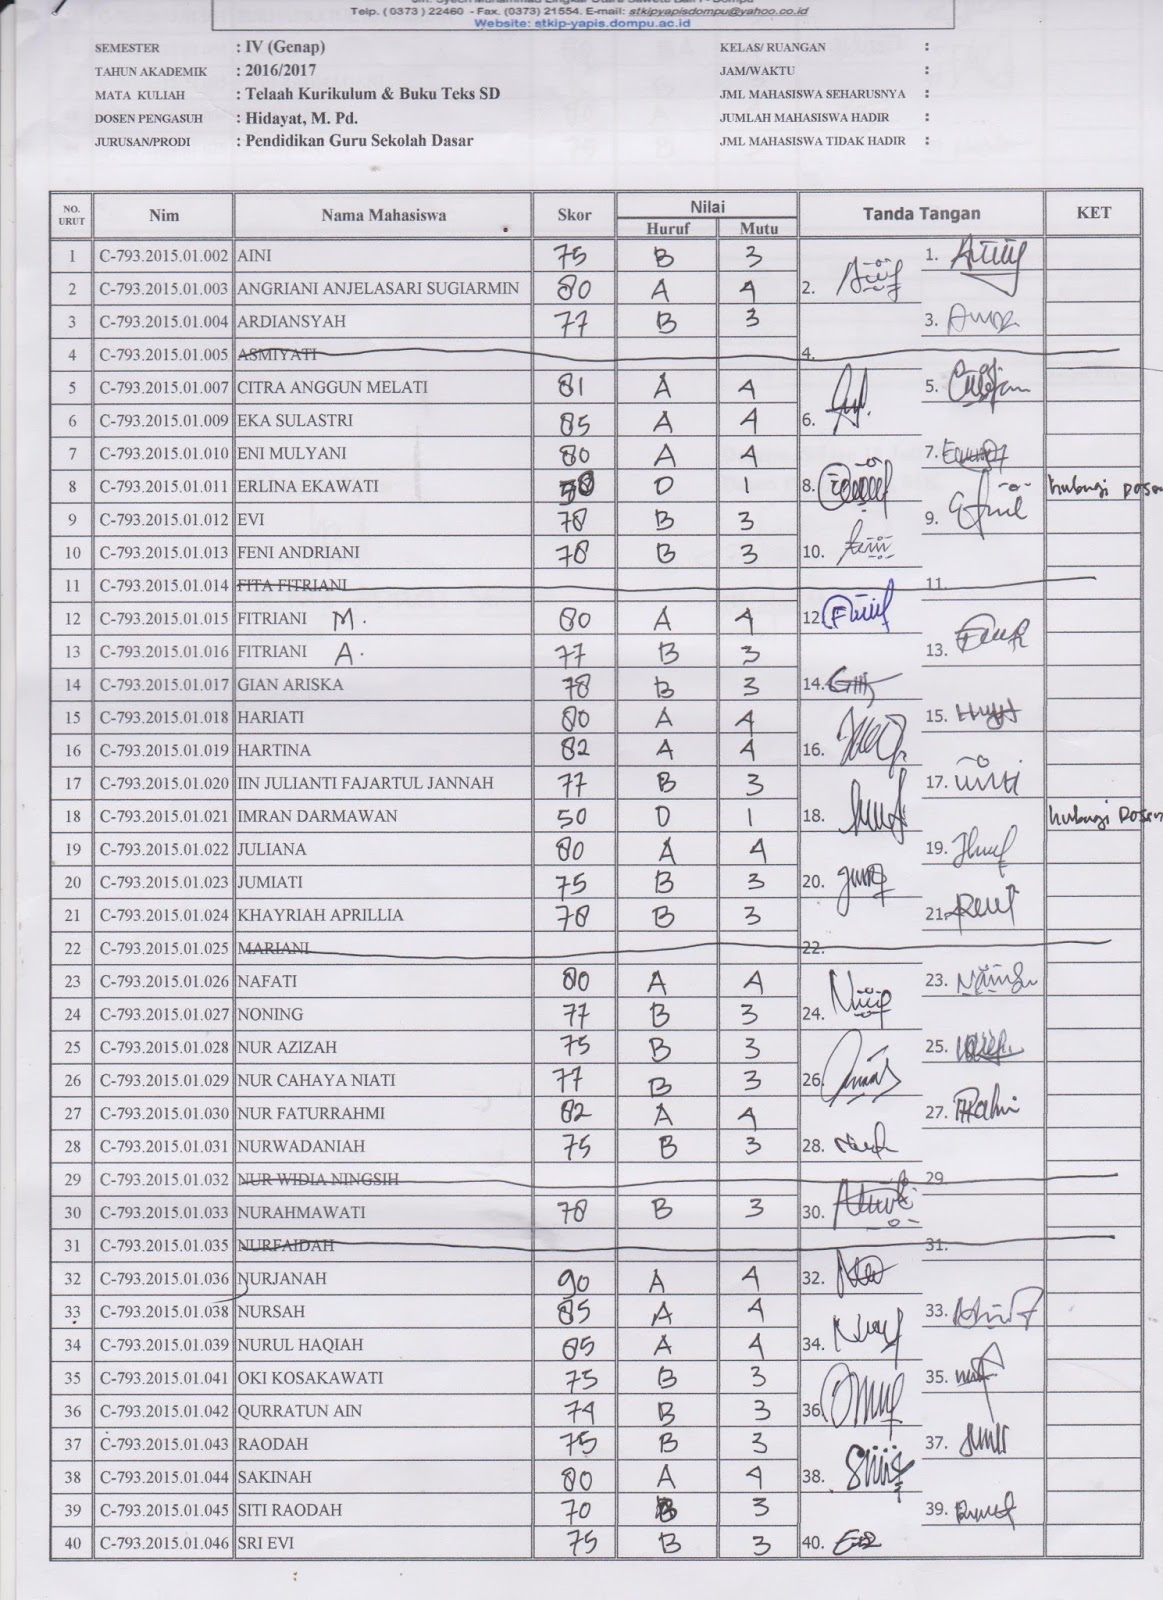 Telp. ( 0373 ) 22460 - Fax. (0373) 21554. E-mail: stkipyapisdompu@yahoo.co.id
Website: stkip-yapis.dompu.ac.id
SEMESTER : IV (Genap) KELAS/ RUANGAN :
TAHUN AKADEMIK : 2016/2017 JAM/WAKTU :
MATA KULIAH : Telaah Kurikulum & Buku Teks SD JML MAHASISWA SEHARUSNYA :
DOSEN PENGASUH : Hidayat, M. Pd. JUMLAH MAHASISWA HADIR :
JURUSAN/PRODI : Pendidikan Guru Sekolah Dasar JML MAHASISWA TIDAK HADIR :
NO. URUT Nim Nama Mahasiswa Skor Nilai Tanda Tangan KET
Huruf Mutu
1 C-793.2015.01.002 AINI 75 B 3 1.
2 C-793.2015.01.003 ANGRIANI ANJELASARI SUGIARMIN 80 A 4 2.
3 C-793.2015.01.004 ARDIANSYAH 77 B 3 3.
4 C-793.2015.01.005 ASMIYATI 4.
5 C-793.2015.01.007 CITRA ANGGUN MELATI 81 A 4 5.
6 C-793.2015.01.009 EKA SULASTRI 85 A 4 6.
7 C-793.2015.01.010 ENI MULYANI 80 A 4 7.
8 C-793.2015.01.011 ERLINA EKAWATI D 1 8. hubungi Dosen
9 C-793.2015.01.012 EVI 78 B 3 9.
10 C-793.2015.01.013 FENI ANDRIANI 78 B 3 10.
11 C-793.2015.01.014 FITA FITRIANI 11.
12 C-793.2015.01.015 FITRIANI M. 80 A 4 12
13 C-793.2015.01.016 FITRIANI A. 77 B 3 13.
14 C-793.2015.01.017 GIAN ARISKA 78 B 3 14.
15 C-793.2015.01.018 HARIATI 80 A 4 15.
16 C-793.2015.01.019 HARTINA 82 A 4 16.
17 C-793.2015.01.020 IIN JULIANTI FAJARTUL JANNAH 77 B 3 17.
18 C-793.2015.01.021 IMRAN DARMAWAN 50 D 1 18. hubungi Dosen
19 C-793.2015.01.022 JULIANA 80 A 4 19.
20 C-793.2015.01.023 JUMIATI 75 B 3 20.
21 C-793.2015.01.024 KHAYRIAH APRILLIA 78 B 3 21.
22 C-793.2015.01.025 MARIANI 22.
23 C-793.2015.01.026 NAFATI 80 A 4 23.
24 C-793.2015.01.027 NONING 77 B 3 24.
25 C-793.2015.01.028 NUR AZIZAH 75 B 3 25.
26 C-793.2015.01.029 NUR CAHAYA NIATI 77 B 3 26.
27 C-793.2015.01.030 NUR FATURRAHMI 82 A 4 27.
28 C-793.2015.01.031 NURWADANIAH 75 B 3 28.
29 C-793.2015.01.032 NUR WIDIA NINGSIH 29.
30 C-793.2015.01.033 NURAHMAWATI 78 B 3 30.
31 C-793.2015.01.035 NURFAIDAH 31.
32 C-793.2015.01.036 NURJANAH 90 A 4 32.
33 C-793.2015.01.038 NURSAH 85 A 4 33.
34 C-793.2015.01.039 NURUL HAQIAH 85 A 4 34.
35 C-793.2015.01.041 OKI KOSAKAWATI 75 B 3 35.
36 C-793.2015.01.042 QURRATUN AIN 74 B 3 36
37 C-793.2015.01.043 RAODAH 75 B 3 37.
38 C-793.2015.01.044 SAKINAH 80 A 4 38.
39 C-793.2015.01.045 SITI RAODAH 70 B 3 39.
40 C-793.2015.01.046 SRI EVI 75 B 3 40.